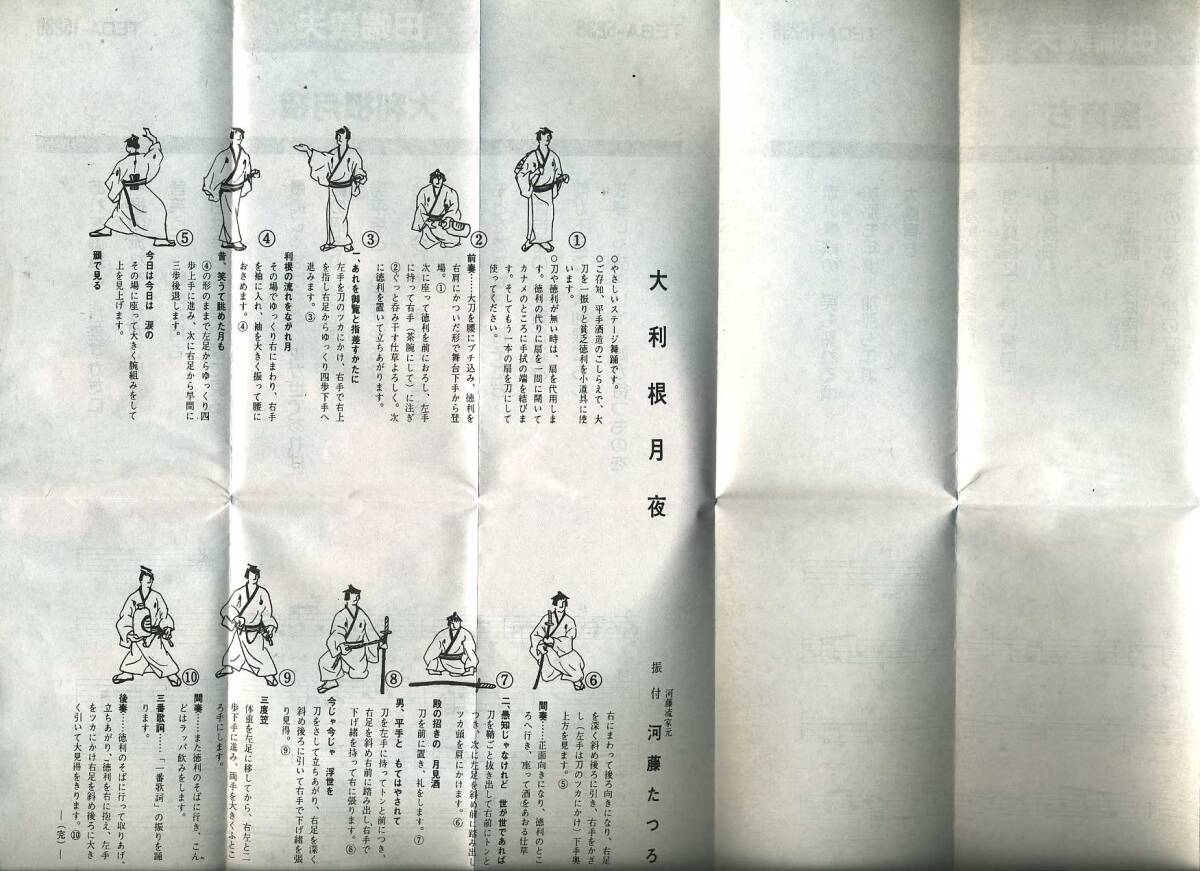 大利根月夜
河藤流家元
振付 河藤たつろ
○やさしいステージ舞踊です。
○ご存知、平手酒造のこしらえで、大
刀を一振りと貧乏徳利を小道具に使
います。
○刀や徳利が無い時は、扇を代用しま
す。徳利の代りに扇を一間に開いて
カナメのところに手拭の端を結びま
す。そしてもう一本の扇を刀にして
使ってください。
①
②
③
④
⑤
前奏……大刀を腰にブチ込み、徳利を
右肩にかついだ形で舞台下手から登
場。①
次に座って徳利を前におろし、左手
に持って右手（茶腕にして）に注ぎ
②ぐっと呑み干す仕草よろしく。次
に徳利を置いて立ちあがります。
一、あれを御覧と指差すかたに
左手を刀のツカにかけ、右手で右上
を指し右足からゆっくり四歩下手へ
進みます。③
利根の流れをながれ月
その場でゆっくり右にまわり、右手
を袖に入れ、袖を大きく振って腰に
おさめます。④
昔、笑うて眺めた月も
④の形のままで左足からゆっくり四
歩上手に進み、次に右足から早間に
三歩後退します。
今日は今日は 涙の
その場に座って大きく腕組みをして
上を見上げます。
顔で見る
右にまわって後ろ向きになり、右足
を深く斜め後ろに引き、右手をかざ
し（左手は刀のツカにかけ）下手奥
上方を見ます。⑤
間奏……正面向きになり、徳利のとこ
ろへ行き、座って酒をあおる仕草
二、愚知じゃなけれど 世が世であれば
刀を鞘ごと抜き出して右前にトンと
つき、次に左足を斜め前に踏み出し
ツカ頭を肩にかけます。⑥
殿の招きの 月見酒
刀を前に置き、礼をします。⑦
男、平手と もてはやされて
刀を左手に持ってトンと前につき、
右足を斜め右前に踏み出し、右手で
下げ緒を持って右に張ります。⑧
今じゃ今じゃ 浮世を
刀をさして立ちあがり、右足を深く
斜め後ろに引いて右手で下げ緒を張
り見得。⑨
三度笠
体重を左足に移してから、右左と二
歩下手に進み、両手を大きくふとこ
ろ手にします。
間奏……また徳利のそばに行き、こん
どはラッパ飲みをします。
三番歌詞……「一番歌詞」の振りを踊
ります。
後奏……徳利のそばに行って取りあげ、
立ちあがり、徳利を右に抱え、左手
をツカにかけ右足を斜め後ろに大き
く引いて大見得をきります。⑩
―（完）―
⑥
⑦
⑧
⑨
⑩